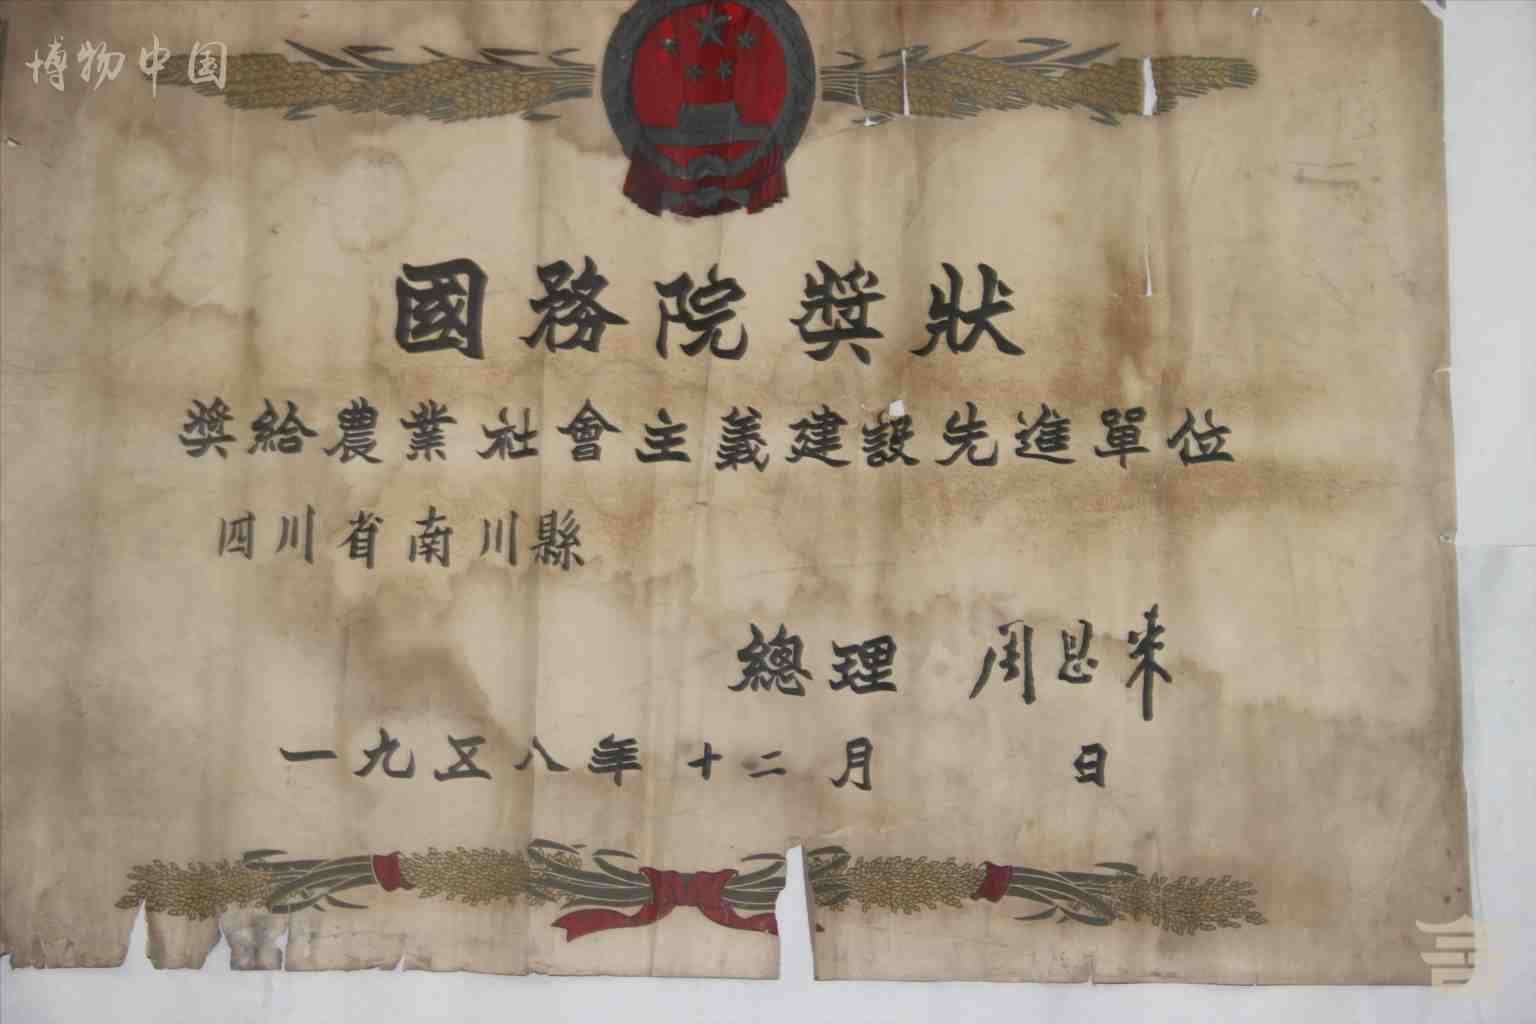 博物中国
國務院奬狀
奬給農業社會主義建設先進單位
四川省南川縣
總理 周恩来
一九五八年十二月 日